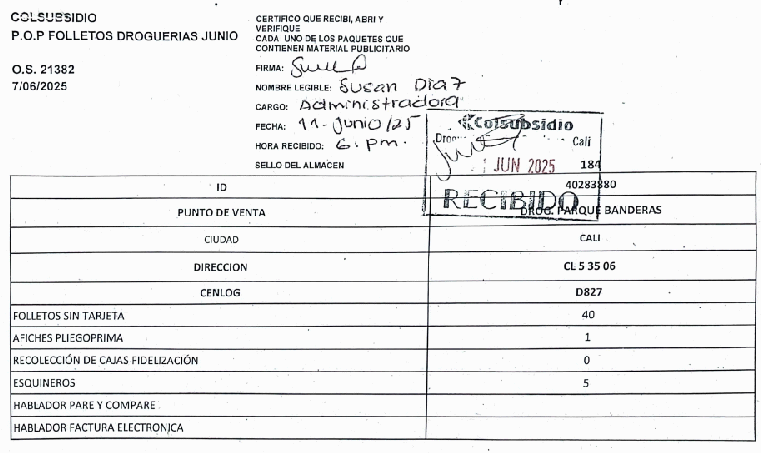 COLSUBSIDIO
P.O.P FOLLETOS DROGUERIAS JUNIO
O.S. 21382
7/06/2025
CERTIFICO QUE RECIBI, ABRI Y
VERIFIQUE
CADA UNO DE LOS PAQUETES QUE
CONTIENEN MATERIAL PUBLICITARIO
FIRMA:
NOMBRE LEGIBLE: Susan Diaz
CARGO: Administradora
FECHA: 11. Junio/25
HORA RECIBIDO: 6. pm.
SELLO DEL ALMACEN
Colsubsidio
Cali
1 JUN 2025 184
RECIBIDO
ID 40283880
PUNTO DE VENTA DROG. PARQUE BANDERAS
CIUDAD CALI
DIRECCION CL 5 35 06
CENLOG D827
FOLLETOS SIN TARJETA 40
AFICHES PLIEGOPRIMA 1
RECOLECCIÓN DE CAJAS FIDELIZACIÓN 0
ESQUINEROS 5
HABLADOR PARE Y COMPARE
HABLADOR FACTURA ELECTRONICA